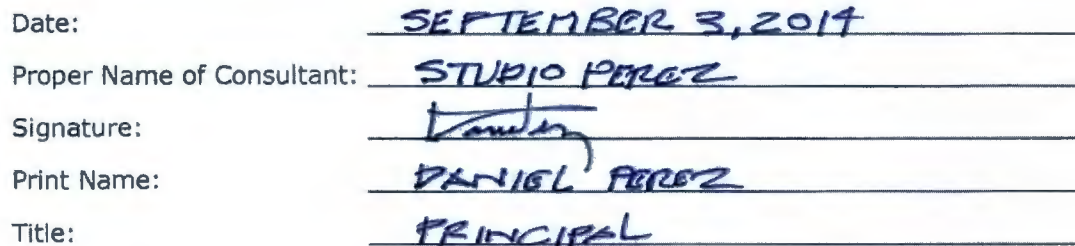 Date: SEPTEMBER 3, 2014
Proper Name of Consultant: STUDIO PEREZ
Signature:
Print Name: DANIEL PEREZ
Title: PRINCIPAL